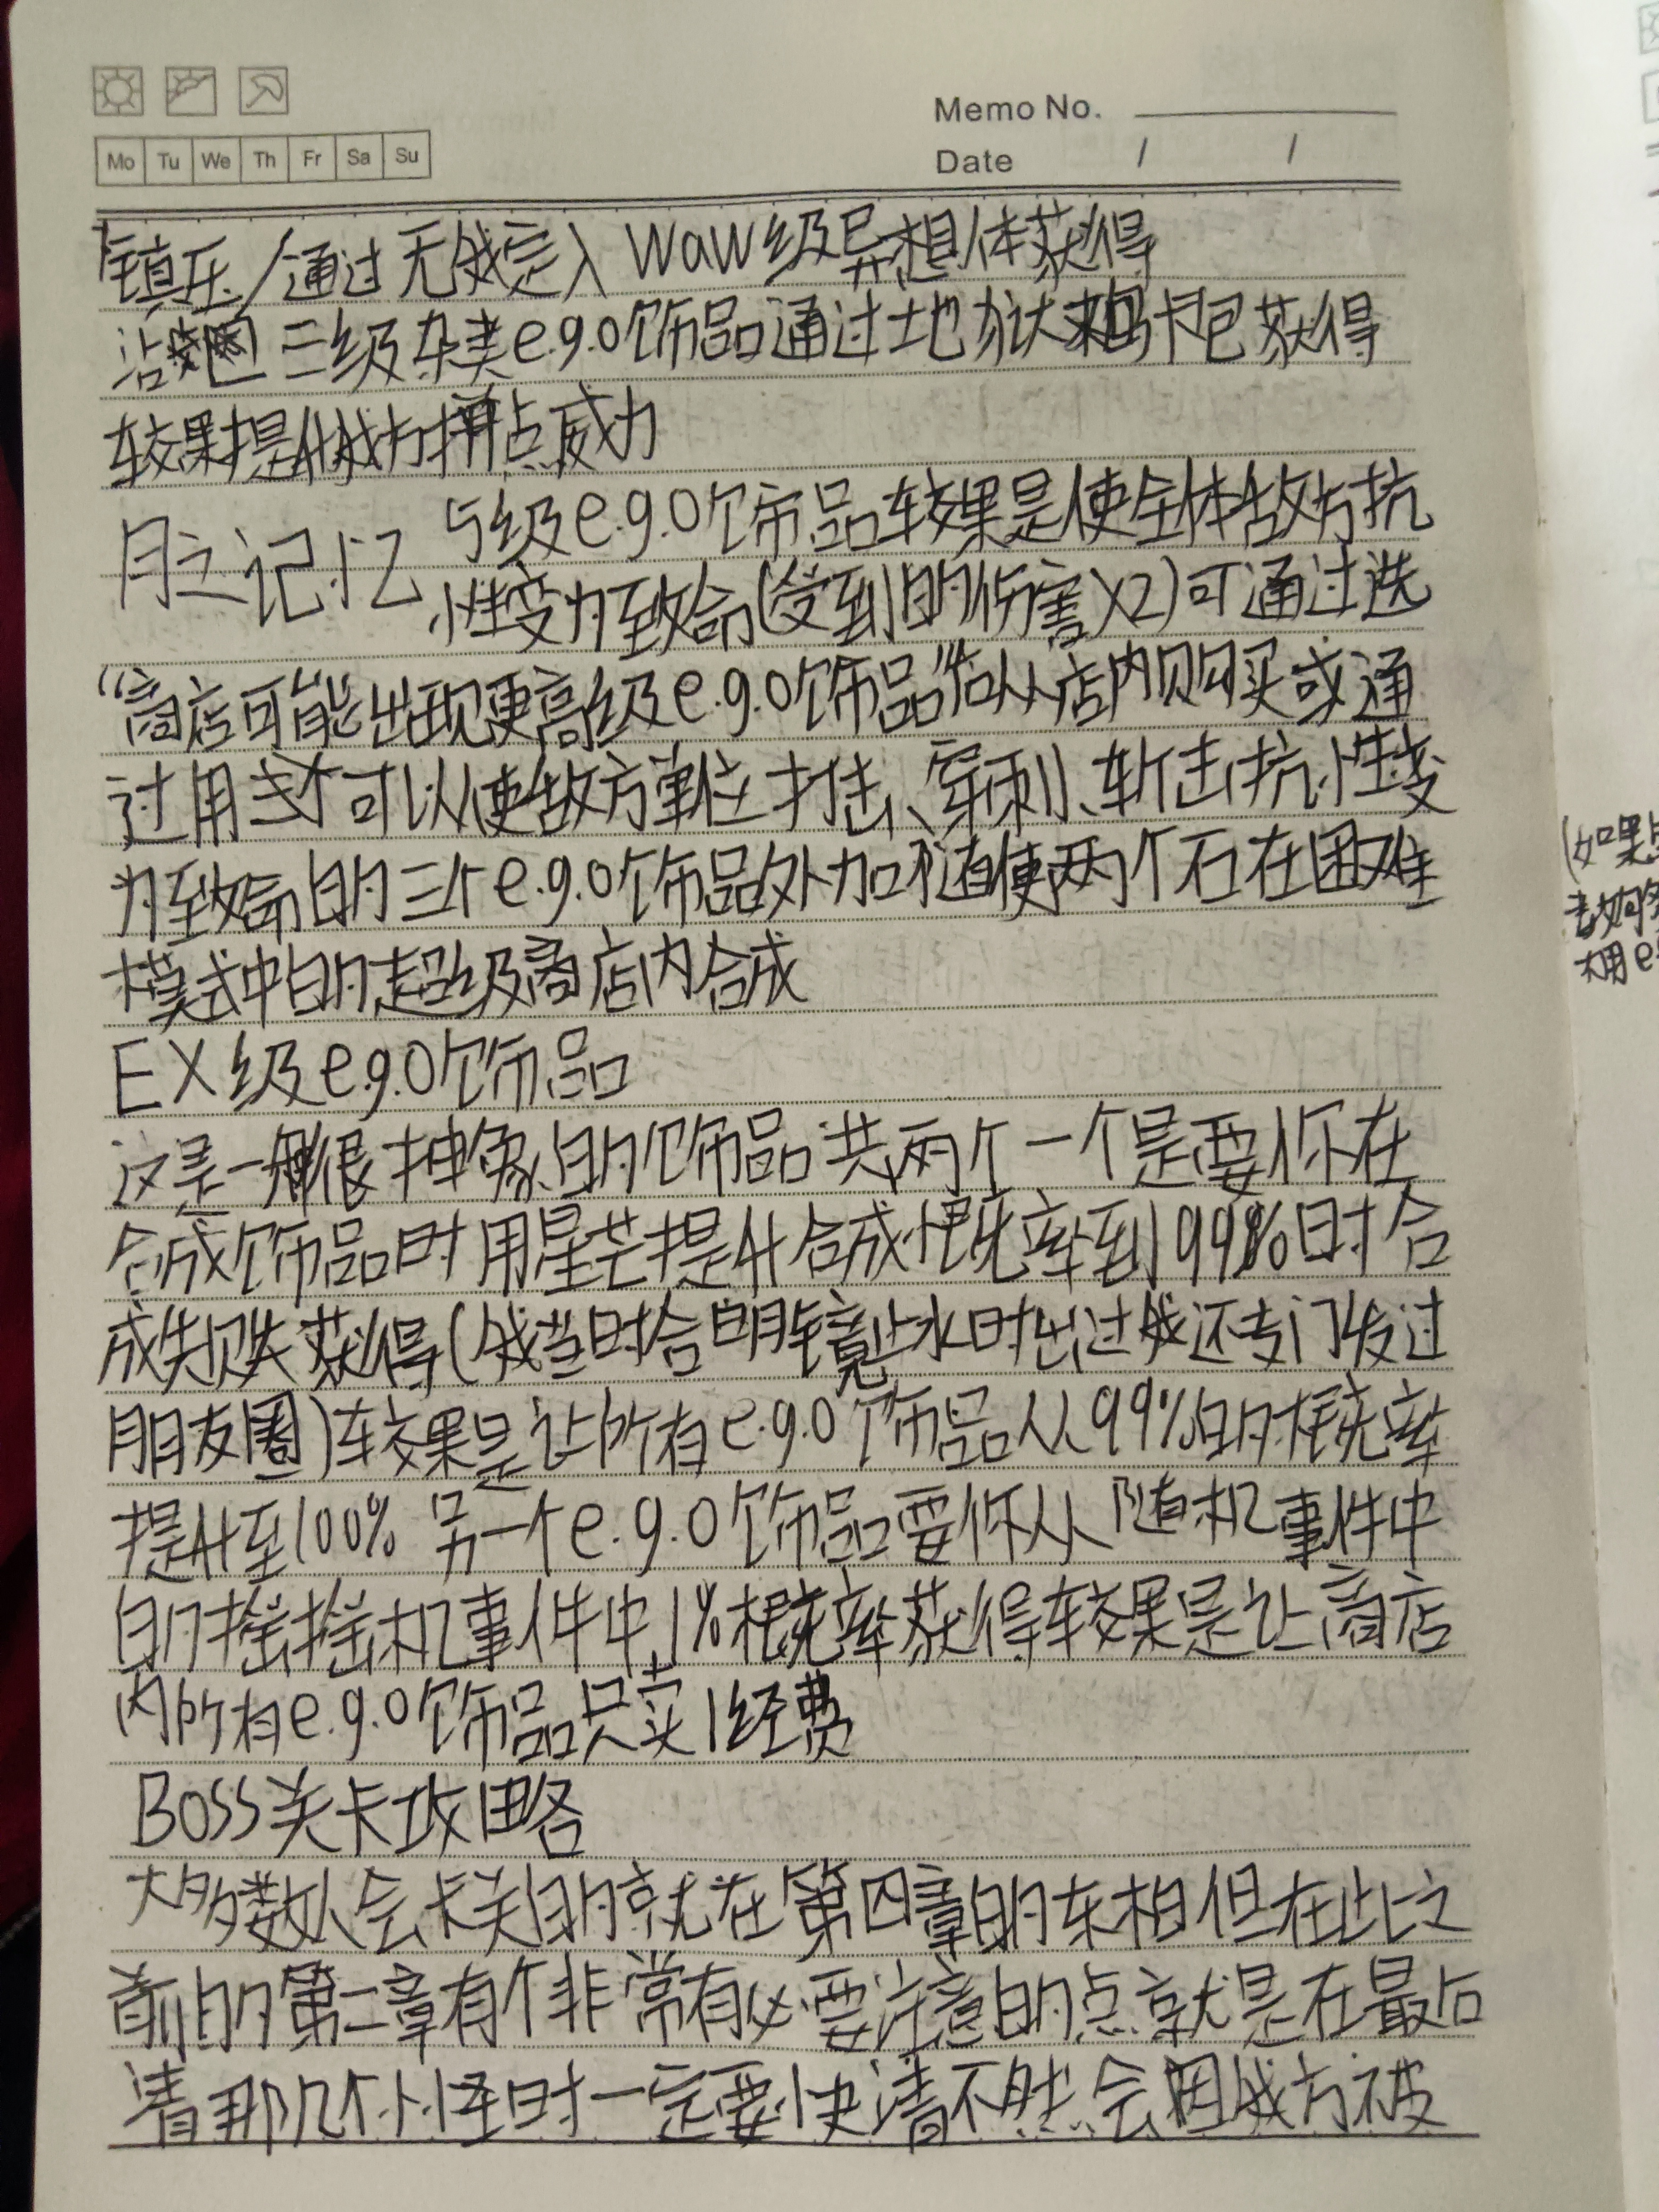 Memo No.
Mo Tu We Th Fr Sa Su
Date / /
镇压/通过 无我定入 WaW级异想体获得
三级杂类e.g.o饰品通过地狱 卡包获得
效果提升我方拼点威力
月之记忆 5级e.g.o饰品效果是使全体敌方抗
性变为致命(受到的伤害X2)可通过选
“商店可能出现更高级e.g.o饰品”后从店内购买或通
过用 可以使敌方单位打击、穿刺、斩击抗性变
为致命的三个e.g.o饰品外加随便两个石在困难
模式中的超级商店内合成
EX级e.g.o饰品
这是一种很抽象的饰品共两个一个是要你在
合成饰品时用星芒提升合成概率到99%时合
成失败获得(我当时合明镜止水时出过我还专门发过
朋友圈)效果是让所有e.g.o饰品从99%的概率
提升至100% 另一个e.g.o饰品要你从随机事件中
的摇摇机事件中1%概率获得效果是让商店
内所有e.g.o饰品只卖1经费
Boss关卡攻略
大多数人会卡关的就在第四章的东相但在此之
前的第二章有个非常有必要注意的点就是在最后
清那几个小怪时一定要快清不然会因我方被
(如果
大用e